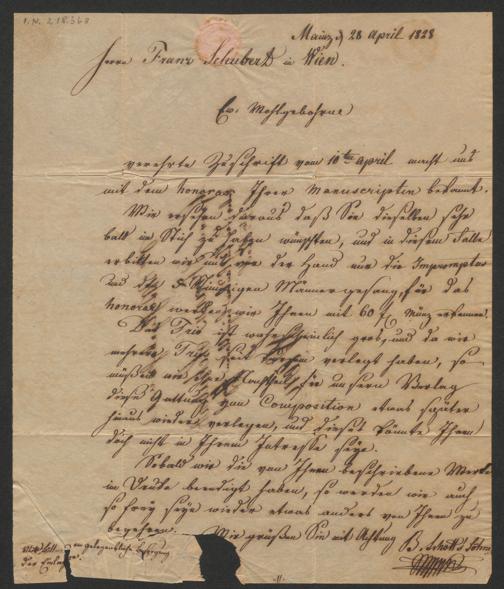 I.N. 218.368
Mainz d 28 April 1828
Herrn Franz Schubert in Wien.
Ew. Wohlgebohrnen
verehrte Zuschrift vom 10ten April macht uns
mit dem honorar Ihrer Manuscripten bekannt.
Wir ersehen daraus daß Sie dieselben sehr
bald im Stich zu haben wünschten, und in diesem Falle
erbitten wir uns vor der Hand nur die Impromptus
und den 5 stimmigen Männergesang, für das
honorar werden wir Ihnen mit 60 f Münz erkennen.
Das Trio ist wahrscheinlich groß, und da wir
mehrere Trios seit verlegt haben, so
müßen wir ohne Nachtheil für unsern Verlag
diese Gattung von Composition etwas später
hinaus wieder verlegen, und dieses könnte Ihnen
doch nicht in Ihrem Interesse seye.
Sobald wir die von Ihnen beschriebene Werke
im Drucke beendigt haben, so werden wir auch
so frey seye wieder etwas anders von Ihnen zu
begehren. Wir grüßen Sie mit Achtung B. Schott's Söhne
um gelegentliche Besorgung
der Einlage